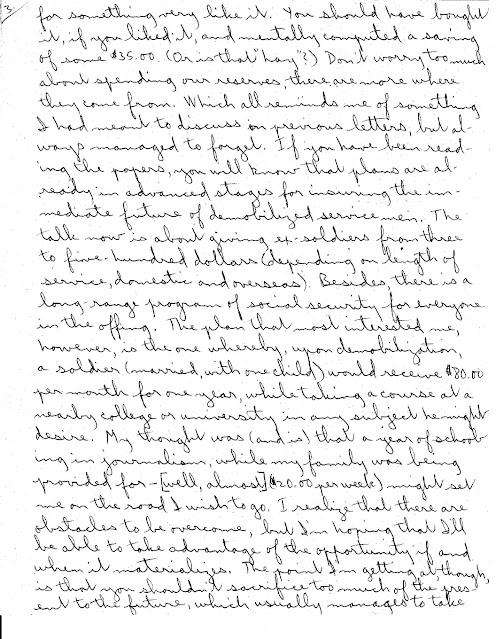 3.
for something very like it. You should have bought
it, if you liked it, and mentally computed a saving
of some $35.00. (Or is that "hay"?) Don't worry too much
about spending our reserves, there are more where
they come from. Which all reminds me of something
I had meant to discuss in previous letters, but al-
ways managed to forget. If you have been read-
ing the papers, you will know that plans are al-
ready in advanced stages for insuring the im-
mediate future of demobilized service men. The
talk now is about giving ex-soldiers from three
to five-hundred dollars (depending on length of
service, domestic and overseas). Besides, there is a
long-range program of social security for everyone
in the offing. The plan that most interested me,
however, is the one whereby, upon demobilization,
a soldier (married, with one child) would receive $80.00
per month for one year, while taking a course at a
nearby college or university in any subject he might
desire. My thought was (and is) that a year of school-
ing in journalism, while my family was being
provided for - [well, almost] ($20.00 per week) might set
me on the road I wish to go. I realize that there are
obstacles to be overcome, but I'm hoping that I'll
be able to take advantage of the opportunity if and
when it materializes. The point I'm getting at, though,
is that you shouldn't sacrifice too much of the pres-
ent to the future, which usually manages to take